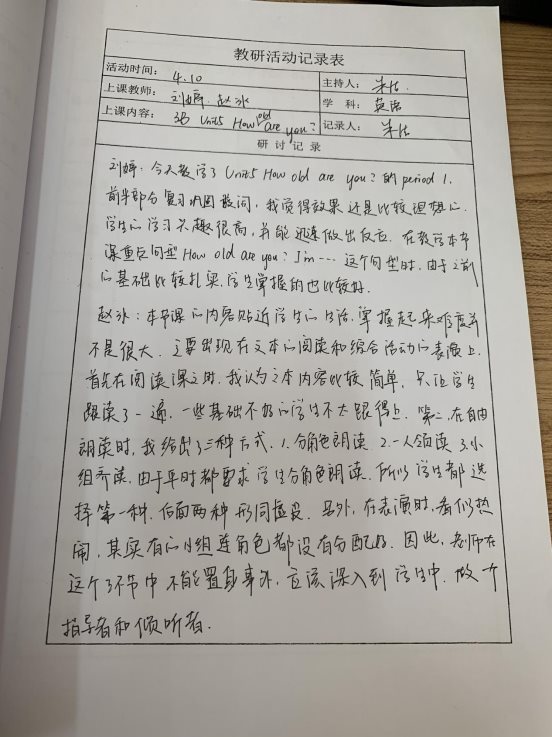 教研活动记录表
活动时间： 4.10 主持人： 朱
上课教师： 刘婷 赵冰 学 科： 英语
上课内容： 3B Unit5 How old are you? 记录人： 朱
研 讨 记 录
刘婷：今天教学了Unit5 How old are you? 的period 1.
前半部分复习巩固数词，我觉得效果还是比较理想的
学生的学习兴趣很高，并能迅速做出反应。在教学本节
课重点句型How old are you? I'm…… 这个句型时，由于之前
的基础比较扎实，学生掌握的也比较好.
赵冰：本节课的内容贴近学生的生活，掌握起来难度并
不是很大。主要出现在文本的阅读和综合活动的表演上.
首先在阅读课文时，我认为文本内容比较简单，只让学生
跟读了一遍，一些基础不好的学生不太跟得上. 第二，在自由
朗读时，我给出了三种方式. 1.分角色朗读 2.一人领读 3.小
组齐读. 由于平时都要求学生分角色朗读，所以学生都选
择第一种. 后面两种形同虚设. 另外，在表演时，看似热
闹，其实有的小组连角色都没有分配好. 因此，老师在
这个环节中不能置身事外，应该深入到学生中，做一个
指导者和倾听者.